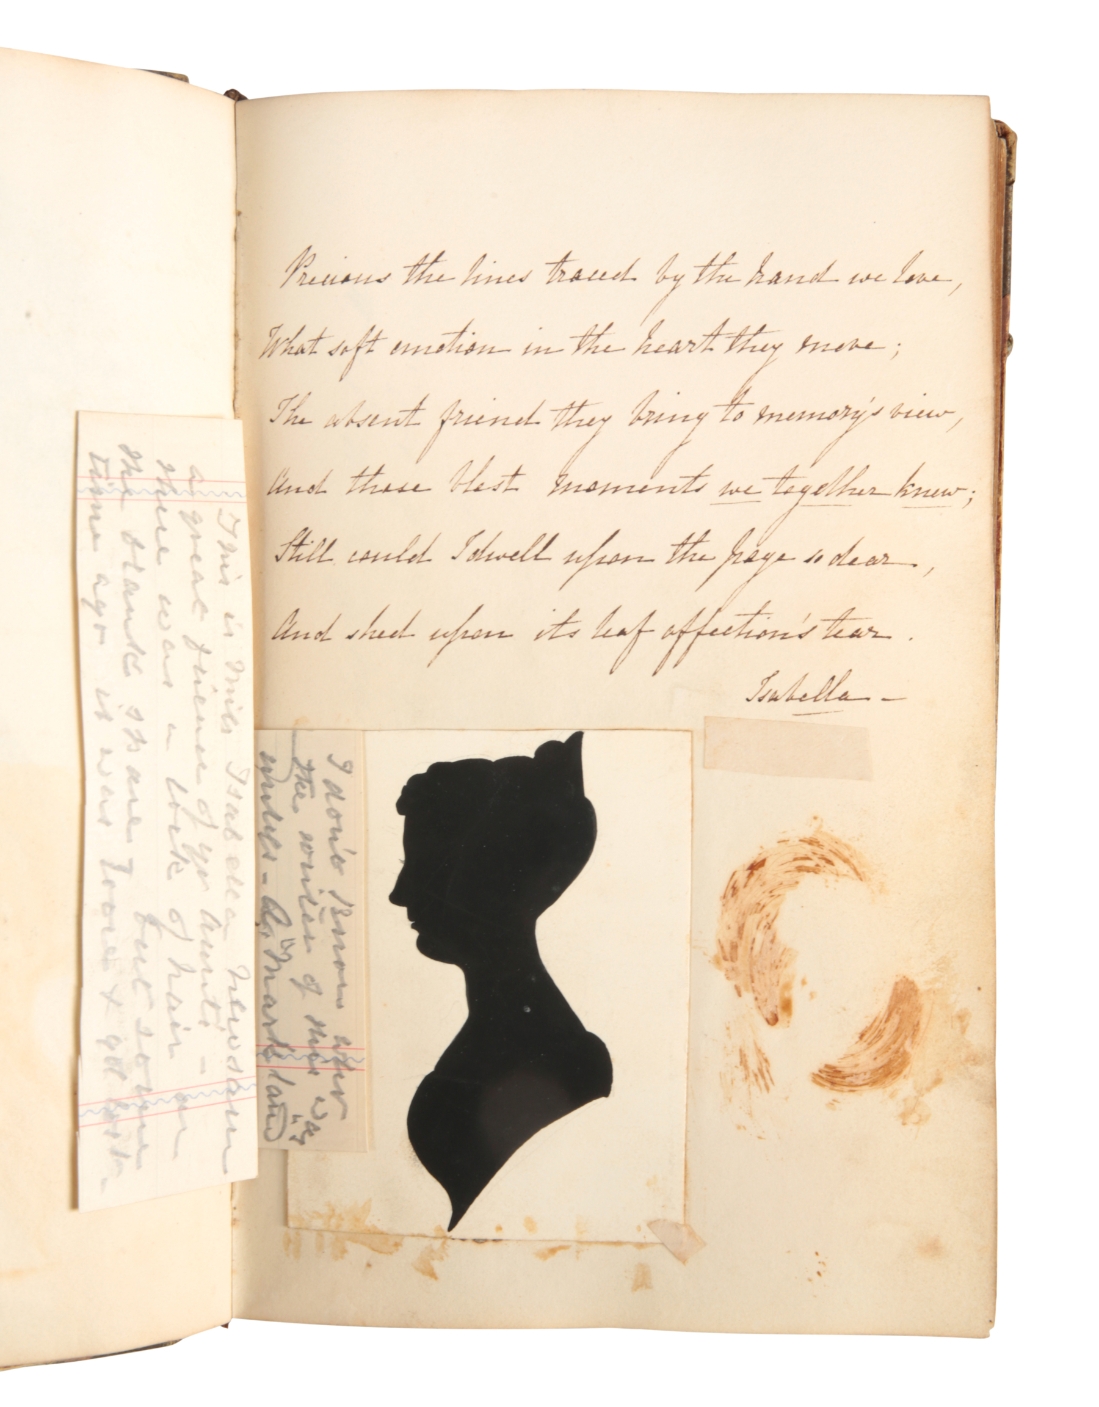 Precious the lines traced by the hand we love,
What soft emotion in the heart they move;
The absent friend they bring to memory's view,
And those blest moments we together knew;
Still could I dwell upon the page so dear,
And shed upon its leaf affection's tear.
Isabella –
This is Miss Isabella Newsam
a great friend of yr Aunt's –
there was a lock of hair on
the blank space but some
time ago it was loose & got lost
I don't know who
the writer of this was
unless – Dr Markland